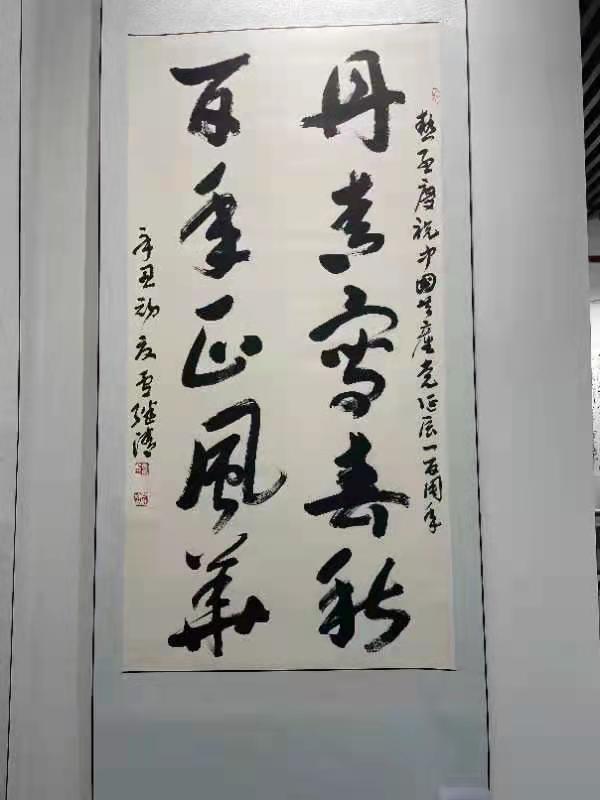 热烈庆祝中国共产党诞辰一百周年
丹青写春秋
百年正风华
辛丑初夏雪继清